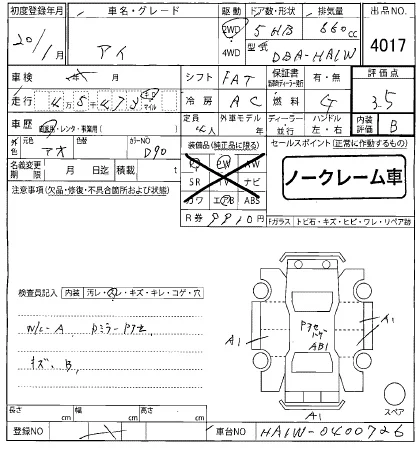 初度登録年月 車名・グレード 駆動 ドア数・形状 排気量 出品NO.
20/1月 アイ 2WD 4WD 5 H/B 660cc 4017
型式 DBA-HA1W
車検 シフト FAT 保証書 有・無 評価点
走行 4万5千473 キロ マイル 冷房 AC 燃料 G 3.5
車歴 自家用・レンタ・事業用( ) 定員 4人 外車モデル 年 ディーラー・並行 ハンドル 左・右 内装評価 B
外色 元色 アオ カラーNO D90 装備品(純正品に限る) セールスポイント(正常に作動するもの)
名義変更期限 月 日迄 積載 t PW AW
SR TV ナビ ノークレーム車
注意事項(欠品・修復・不具合箇所および状態) カワ エアB ABS
R券 9910円 Fガラス トビ石・キズ・ヒビ・ワレ・リペア跡
検査員記入 内装 汚レ・スレ・キズ・キレ・コゲ・穴
N/C-A Dミラー Pアセ
キズ、B、
A1 Pアセ ハゲ AB1 A1
A1 スペア
長さ cm 幅 cm 高さ cm
登録NO 車台NO HA1W-0400726